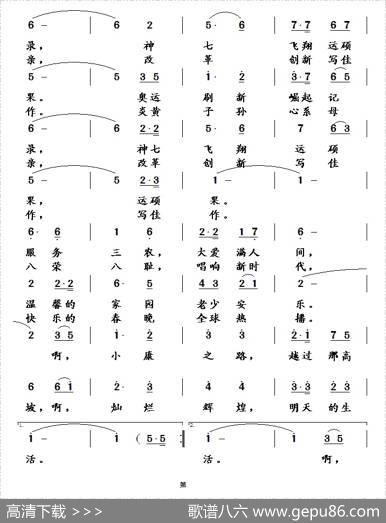 6 – 6 2 5· 6 7·7 6 7 6
录， 神 七 飞翔 远硕
亲， 改 革 创新 写佳
5 – 5 3 5 1· 2 3·7 6 5
果。 奥运 刷 新 崛起 记
作。 炎黄 子 孙 心系 母
6 – 6 2·2 5·6 7 6 3
录， 神七 飞 翔 远 硕
亲， 改革 创 新 写 佳
5 – 5 2·3 1 – 1 –
果， 远硕 果。
作， 写佳 作。
6· 6 1 6 2·2 1 7 6 –
服 务 三 农， 大爱 满人 间，
八 荣 八 耻， 唱响 新时 代，
2 2·2 6· 5 4 3 2 1 2 –
温 馨的 家 园 老少 安 乐。
快 乐的 春 晚 全球 热 播。
2 3 5 1· 2 3 3 2·1 7 5
啊， 小 康 之 路， 越过 那高
6 6 1 2· 3 3 3 3·3 2 3
坡，啊， 灿 烂 辉 煌， 明天 的生
1. 1 – 1 (5·5 :‖ 2. 1 – 1 3 5
活。 活。 啊，
第
高清下载 >>> 歌谱八六 www.gepu86.com